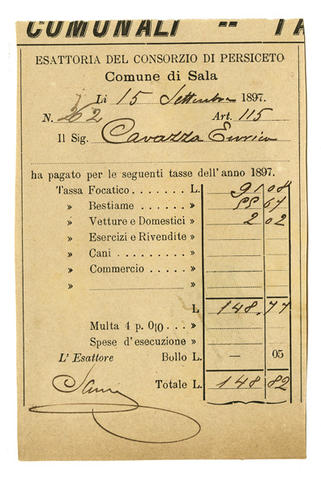 COMUNALI -- TA
ESATTORIA DEL CONSORZIO DI PERSICETO
Comune di Sala
Li 15 Settembre 1897.
N. 262 Art. 115
Il Sig. Cavazza Enrico
ha pagato per le seguenti tasse dell'anno 1897.
Tassa Focatico . . . L. 91 08
» Bestiame . . . » 55 67
» Vetture e Domestici » 2 02
» Esercizi e Rivendite »
» Cani . . . . . »
» Commercio . . . . »
» »
L. 148.77
Multa 4 p. 0|0 . . . »
Spese d'esecuzione »
L'Esattore Bollo L. — 05
Totale L. 148 82